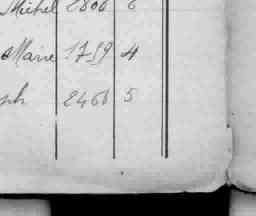 Michel 2806 6
Marie 1759 4
ph 2466 5